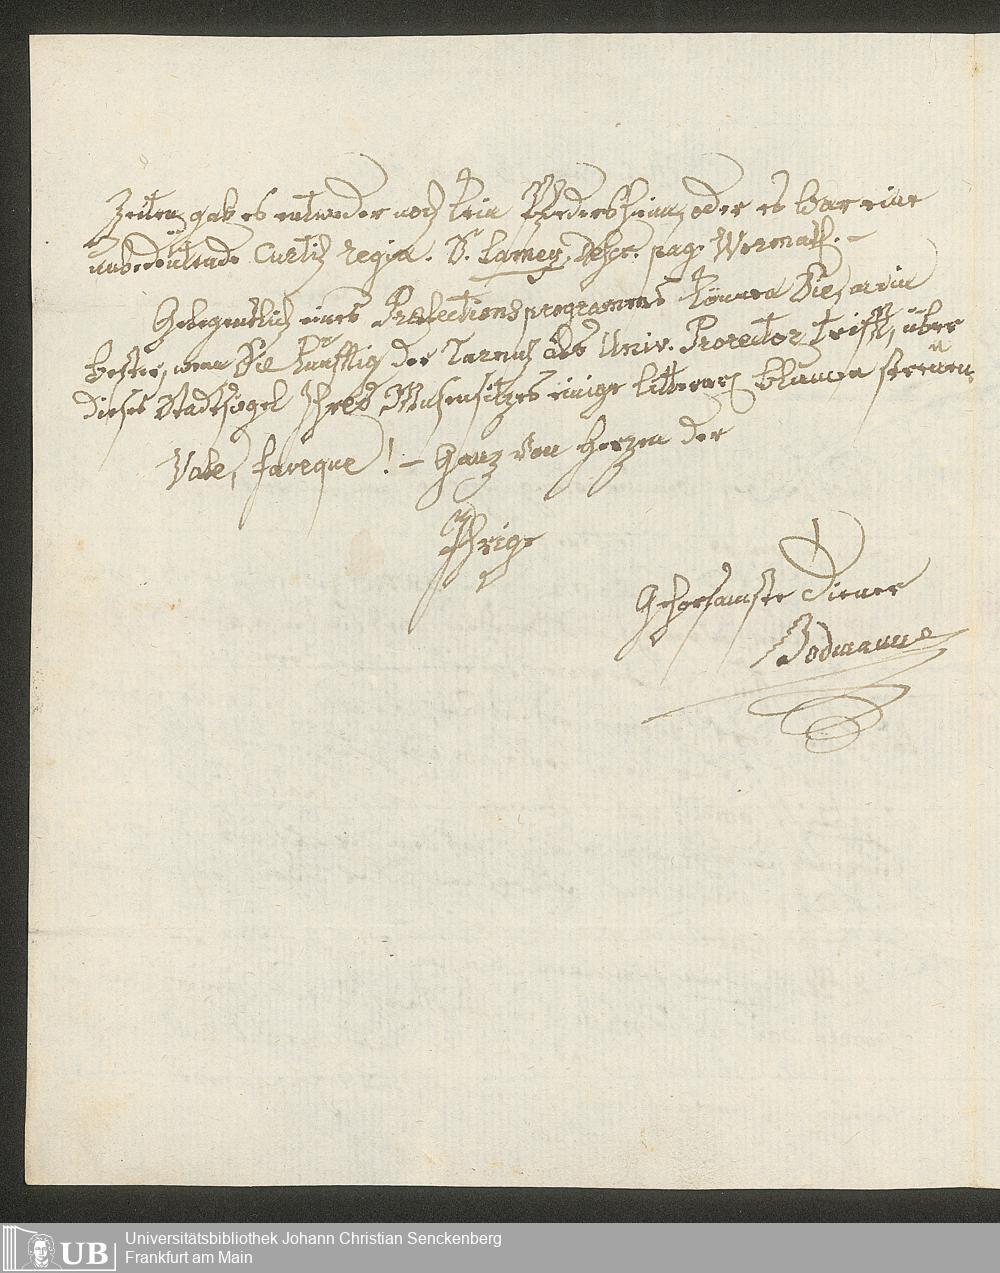 Zeiten, gab es entweder noch kein Pfedersheim, oder es war eine
unbedeutende Curtis regia. S. Lamey, Descr. pag. Wormat. –
Gelegentlich eines Prolectionsprogramms können Sie, mein
bester, wenn Sie künftig der Turnus als Univ. Prorector trifft, über
dieses Stadtsigel Ihres Musensitzes einige litterar. blumen streuen.
Vale, faveque! – Ganz von Herzen der
Ihrige
Gehorsamste Diener
Bodmann
UB
Universitätsbibliothek Johann Christian Senckenberg
Frankfurt am Main